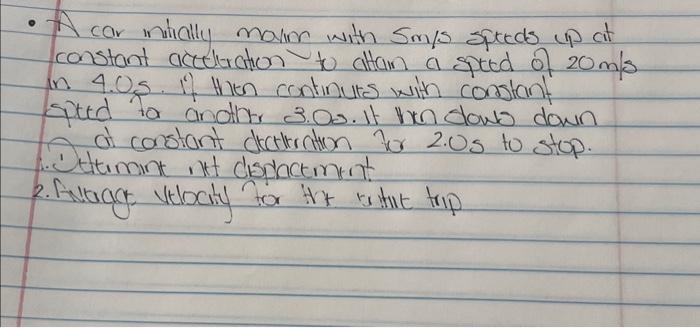 • A car initially movin with 5m/s speeds up at
constant acceleration to attain a speed of 20 m/s
in 4.0s. It then continues with constant
speed for another 3.0s. It then slows down
at constant deceleration for 2.0s to stop.
1. Determine net displacement
2. Average velocity for the entire trip